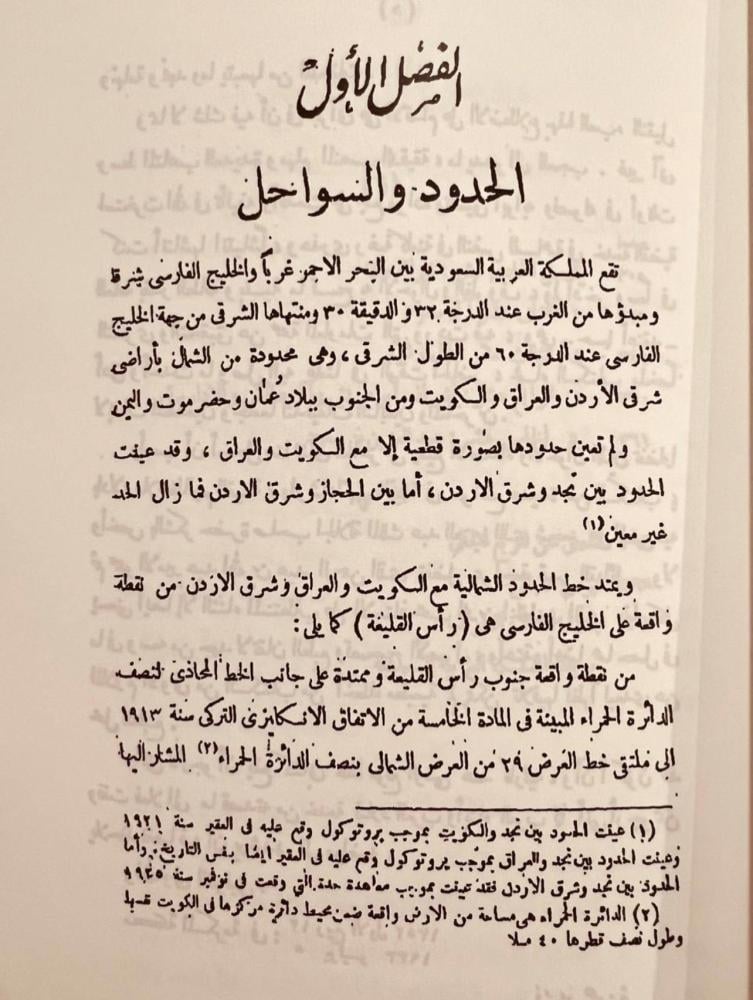 الفصل الأول
الحدود والسواحل
تقع المملكة العربية السعودية بين البحر الاحمر غرباً والخليج الفارسى شرقا
ومبدؤها من الغرب عند الدرجة ٣٢ والدقيقة ٣٠ ومنتهاها الشرقى من جهة الخليج
الفارسى عند الدرجة ٦٠ من الطول الشرقى ، وهى محدودة من الشمال بأراضى
شرقى الأردن والعراق والكويت ومن الجنوب ببلاد عُمان وحضرموت واليمن
ولم تعين حدودها بصورة قطعية إلا مع الكويت والعراق ، وقد عينت
الحدود بين نجد وشرق الاردن ، أما بين الحجاز وشرق الاردن فما زال الحد
غير معين (١)
ويمتد خط الحدود الشمالية مع الكويت والعراق وشرق الاردن من نقطة
واقعة على الخليج الفارسى هى ( رأس القليعة ) كما يلى :
من نقطة واقعة جنوب رأس القليعة وممتدة على جانب الخط المحاذى لنصف
الدائرة الحمراء المبينة فى المادة الخامسة من الاتفاق الانكليزى التركى سنة ١٩١٣
الى ملتقى خط العرض ٢٩ من العرض الشمالى بنصف الدائرة الحمراء (٢) المشار اليها
(١) عينت الحدود بين نجد والكويت بموجب بروتوكول وقع عليه فى العقير سنة ١٩٢١
وعينت الحدود بين نجد والعراق بموجب بروتوكول وقع عليه فى العقير ايضا بنفس التاريخ . وأما
الحدود بين نجد وشرق الاردن فقد عينت بموجب معاهدة حدة التى وقعت فى نوفمبر سنة
(٢) الدائرة الحمراء هى مساحة من الارض واقعة ضمن محيط دائرة مركزها فى الكويت نفسها
وطول نصف قطرها ٤٠ ميلا